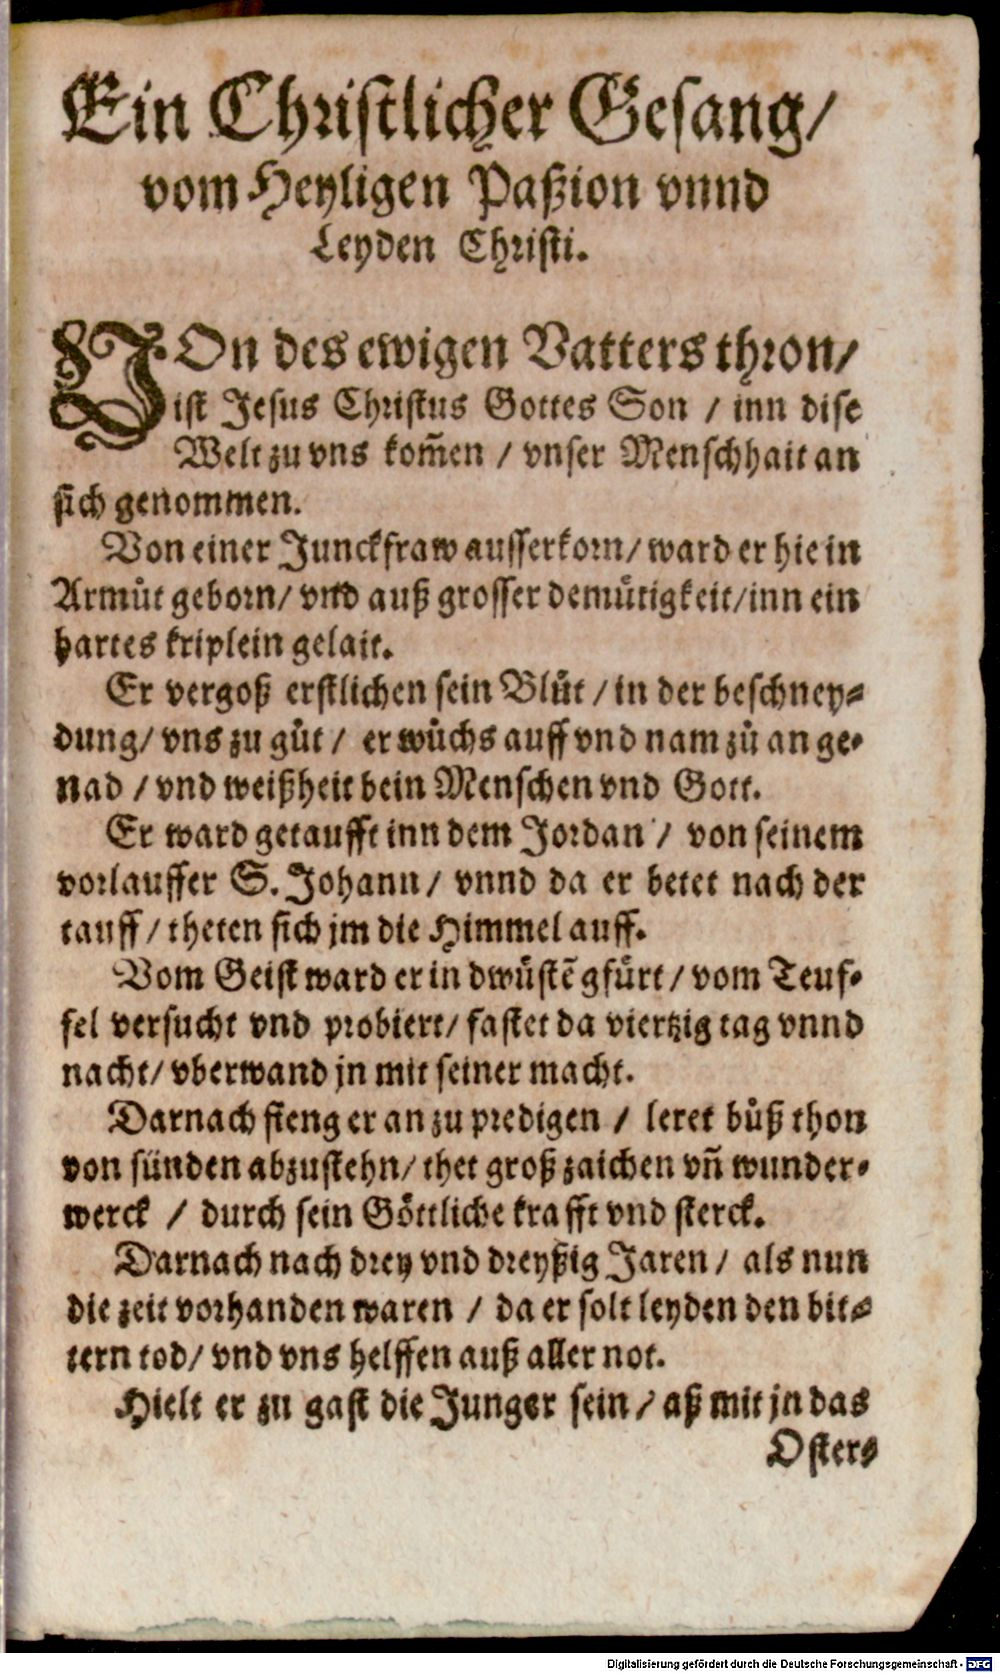 Ein Christlicher Gesang/
vom Heyligen Paßion vnnd
Leyden Christi.
VOn des ewigen Vatters thron/
ist Jesus Christus Gottes Son / inn dise
Welt zu vns kom̃en / vnser Menschhait an
sich genommen.
Von einer Junckfraw ausserkorn/ ward er hie in
Armůt geborn/ vnd auß grosser demůtigkeit/inn ein
hartes kriplein gelait.
Er vergoß erstlichen sein Blůt / in der beschney-
dung/ vns zu gůt / er wůchs auff vnd nam zů an ge-
nad / vnd weißheit bein Menschen vnd Gott.
Er ward getaufft inn dem Jordan / von seinem
vorlauffer S. Johann/ vnnd da er betet nach der
tauff / theten sich jm die Himmel auff.
Vom Geist ward er in dwůstẽ gfürt/ vom Teuf-
fel versucht vnd probiert/ fastet da viertzig tag vnnd
nacht/ vberwand jn mit seiner macht.
Darnach fieng er an zu predigen / leret bůß thon
von sünden abzustehn/ thet groß zaichen vñ wunder-
werck / durch sein Göttliche krafft vnd sterck.
Darnach nach drey vnd dreyßig Jaren / als nun
die zeit vorhanden waren / da er solt leyden den bit-
tern tod/ vnd vns helffen auß aller not.
Hielt er zu gast die Junger sein / aß mit jn das
Oster-
Digitalisierung gefördert durch die Deutsche Forschungsgemeinschaft - DFG